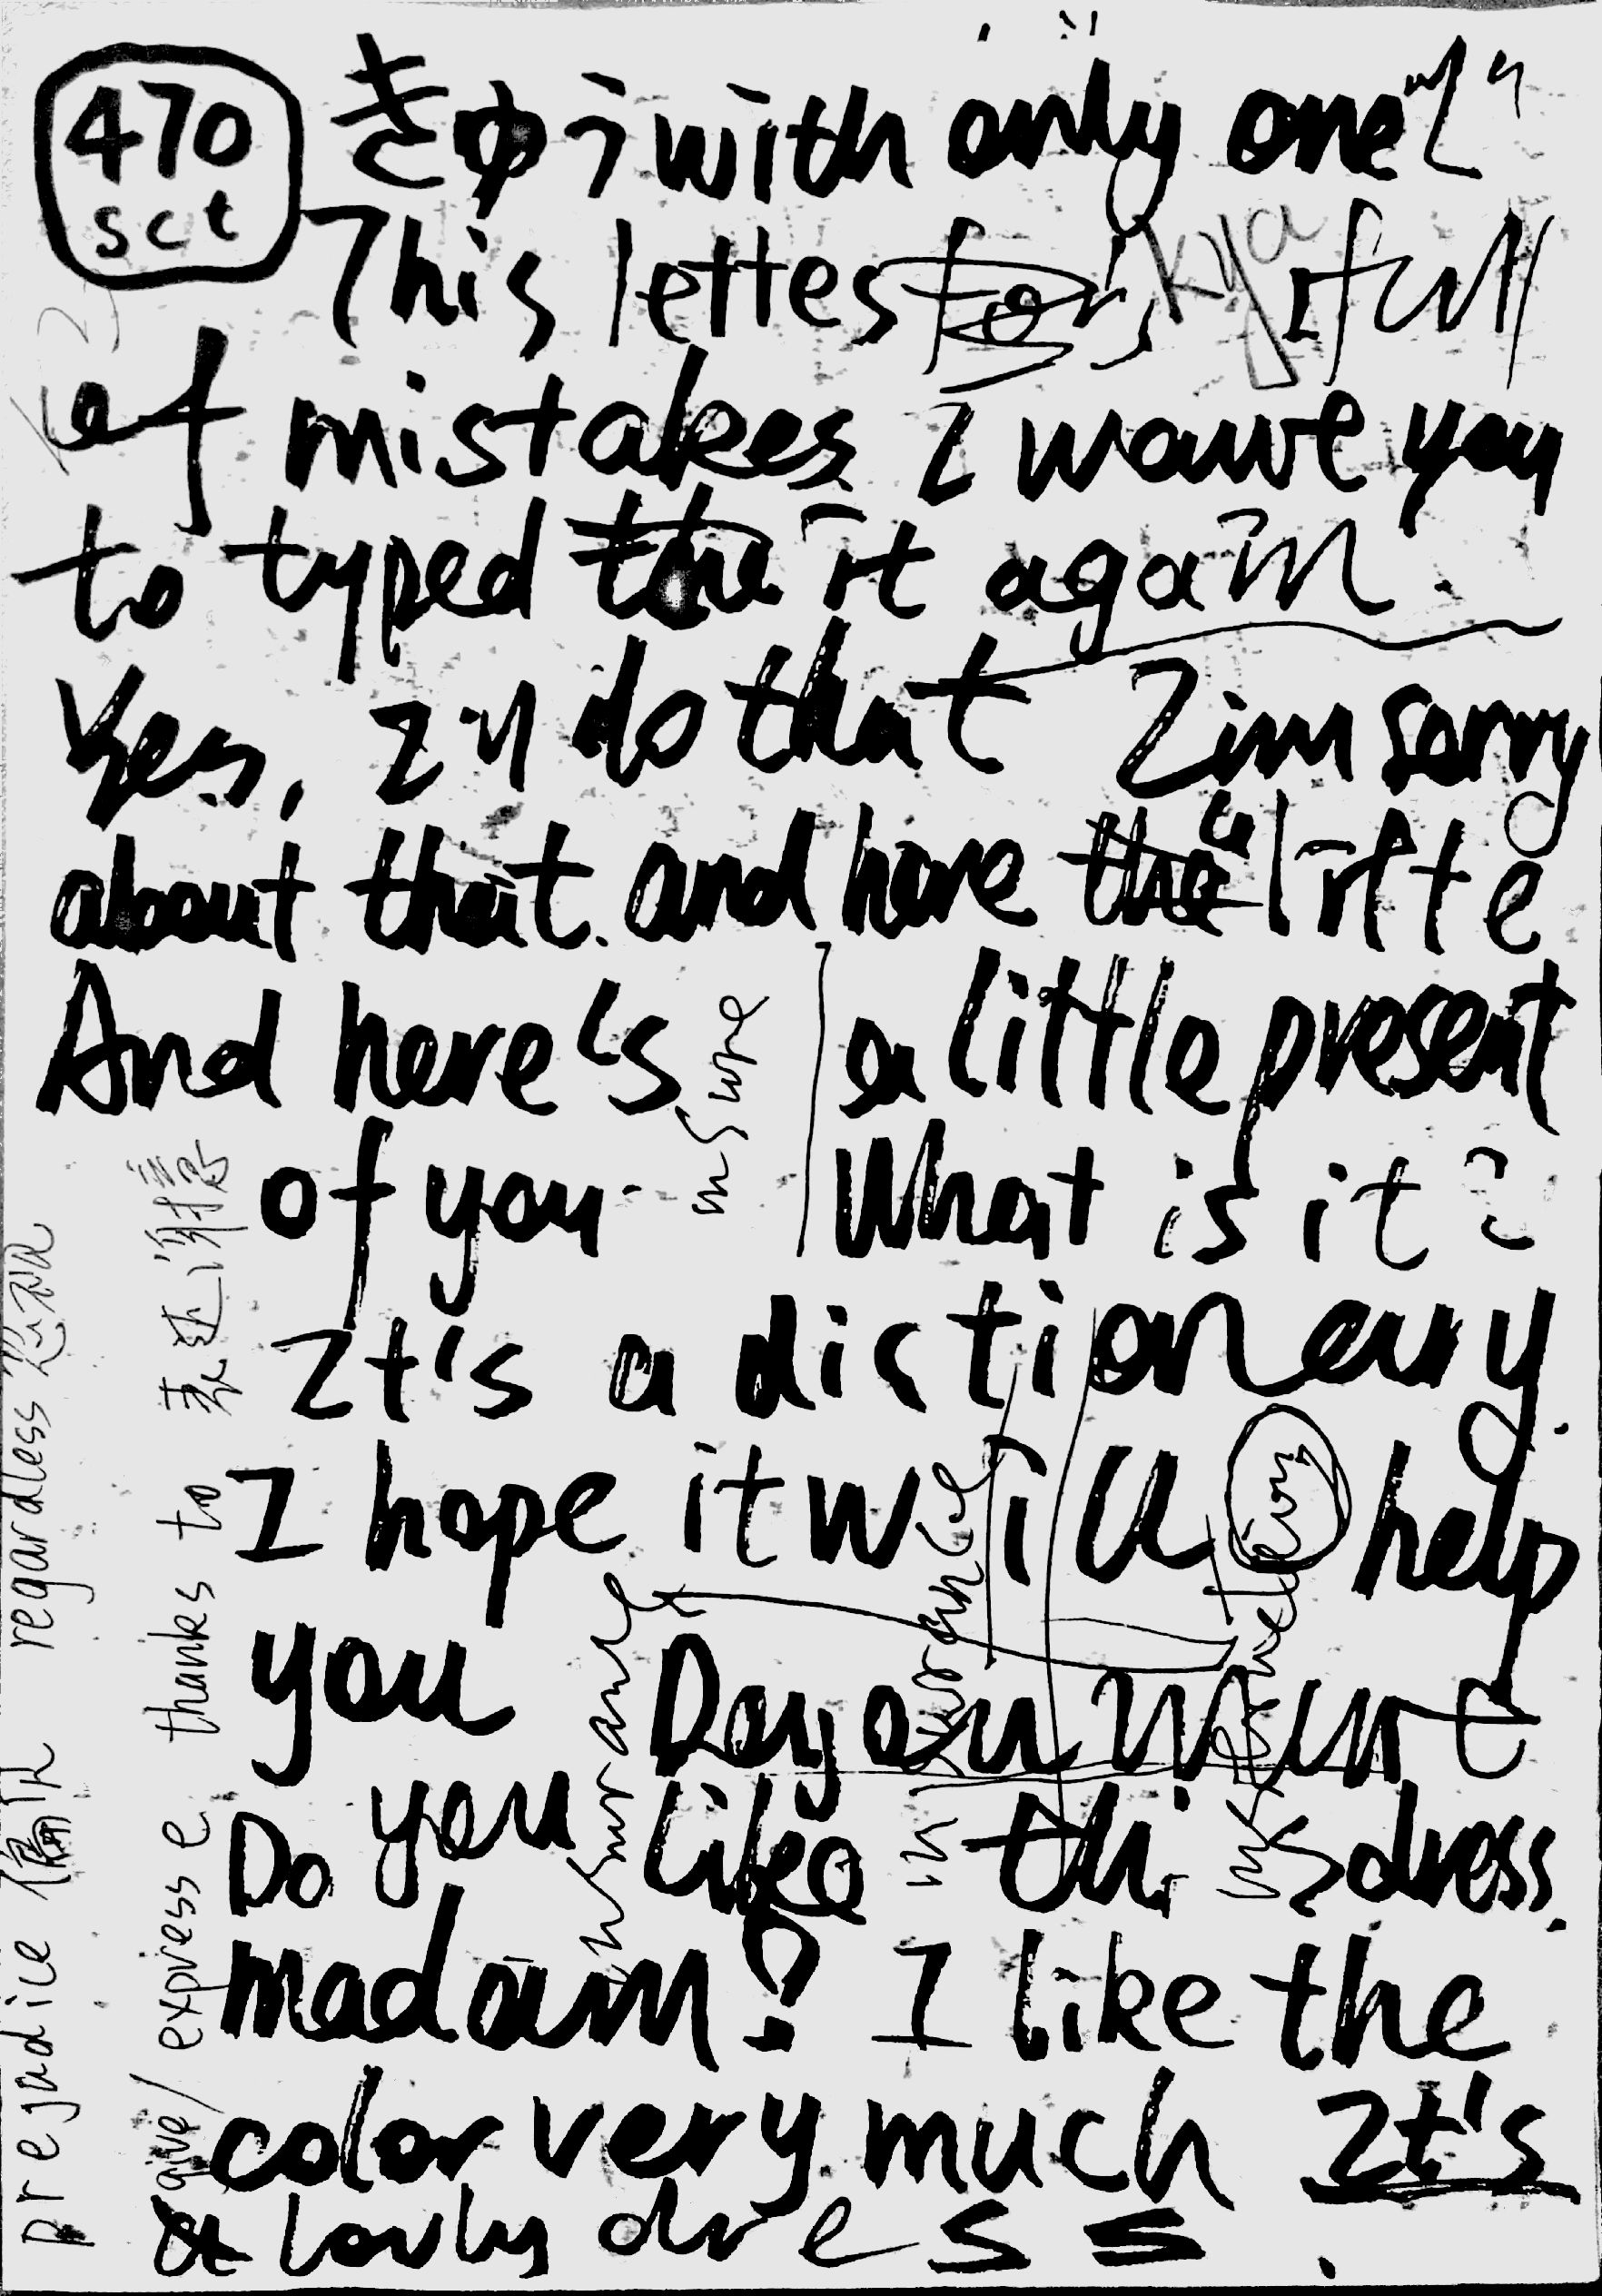 470
sct
きゅう with only one "L"
This lettes for's kya full
of mistakes I wawe you
to typed the it again.
Yes, I'll do that I'im sorry
about that. and here the litte
And here's a little present
of you. What is it?
It's a dictionary.
I hope it will help
you Do you want
Do you like this dress.
madam? I like the
color very much It's
a lovly dress.
insure
insurance
insurance
prejudice 偏见 regardless 忽视
give/ express e thanks to 表达谢意